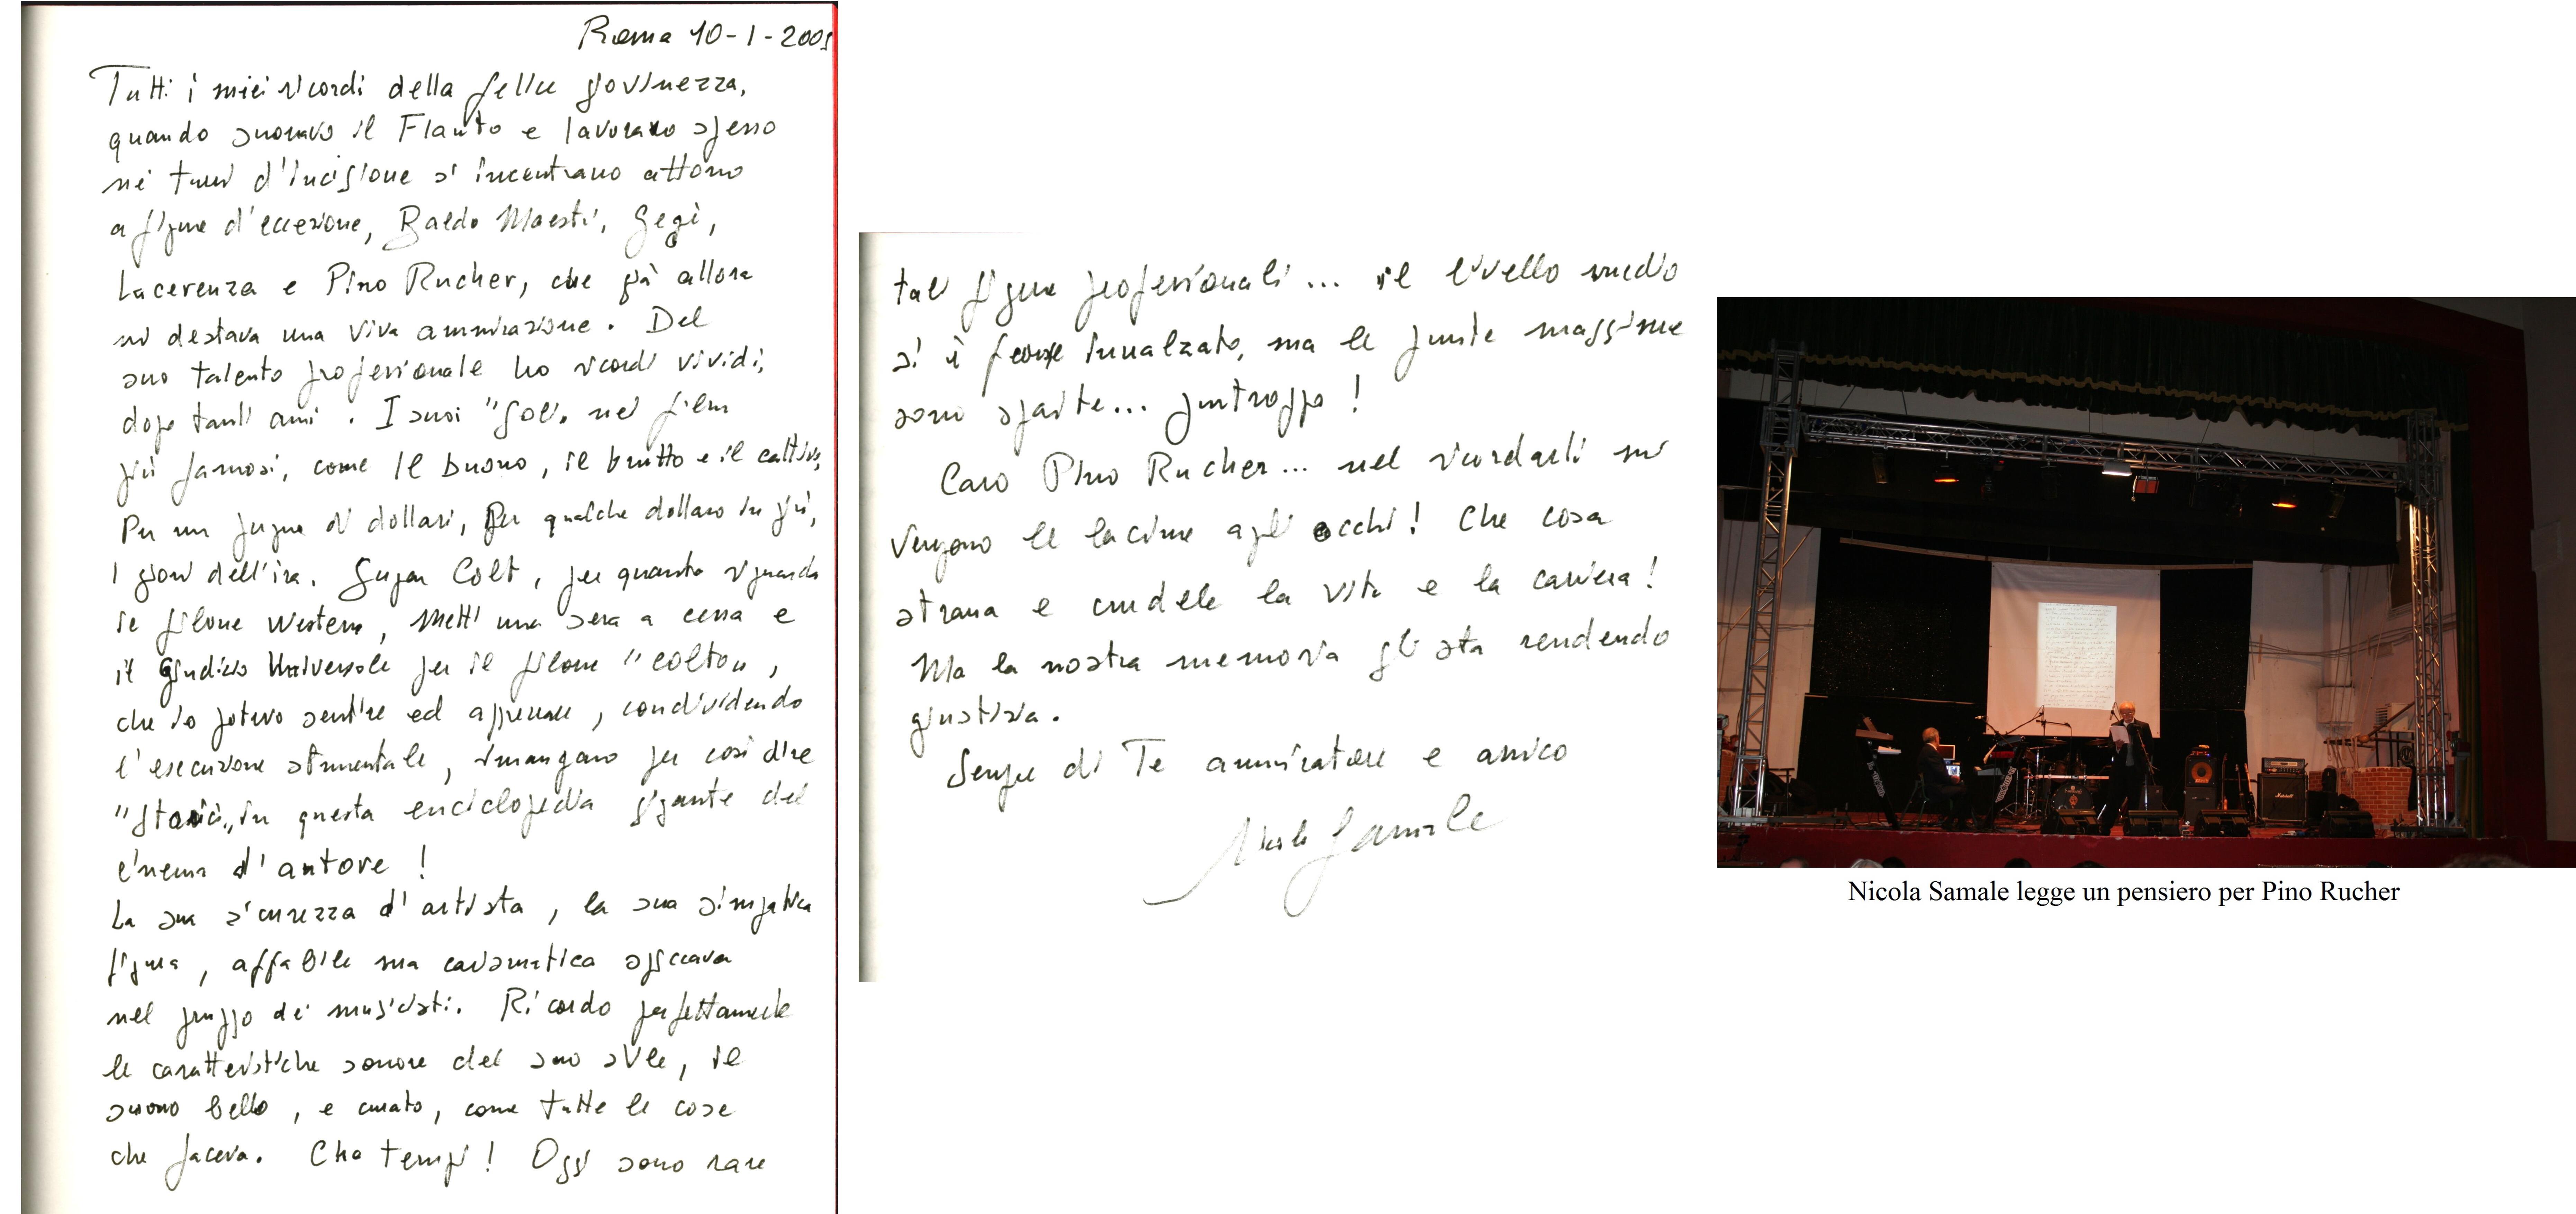 Roma 10-1-2009
Tutti i miei ricordi della felice giovinezza,
quando suonavo il Flauto e lavoravo spesso
nei turni d'incisione si incentrano attorno
a figure d'eccezione, Baldo Maestri, Gegè,
Lacerenza e Pino Rucher, che già allora
mi destava una viva ammirazione. Del
suo talento professionale ho ricordi vividi,
dopo tanti anni. I suoi "soli" nei film
più famosi, come Il buono, il brutto e il cattivo,
Per un pugno di dollari, Per qualche dollaro in più,
I giorni dell'ira. Sugar Colt, per quanto riguarda
il filone western, Metti una sera a cena e
il Giudizio Universale per il filone "colto",
che io potevo sentire ed apprezzare, condividendo
l'esecuzione strumentale, rimangono per così dire
"storici" in questa enciclopedia gigante del
cinema d'autore!
La sua sicurezza d'artista, la sua simpatica
figura, affabile ma carismatica spiccava
nel gruppo dei musicisti. Ricordo perfettamente
le caratteristiche sonore del suo stile, il
suono bello, e curato, come tutte le cose
che faceva. Che tempi! Oggi sono rare
tali figure professionali... il livello medio
si è forse innalzato, ma le punte massime
sono sparite... purtroppo!
Caro Pino Rucher... nel ricordarti mi
vengono le lacrime agli occhi! Che cosa
strana e crudele la vita e la carriera!
Ma la nostra memoria gli sta rendendo
giustizia.
Sempre di Te ammiratore e amico
Nicola Samale
Marshall
Nicola Samale legge un pensiero per Pino Rucher